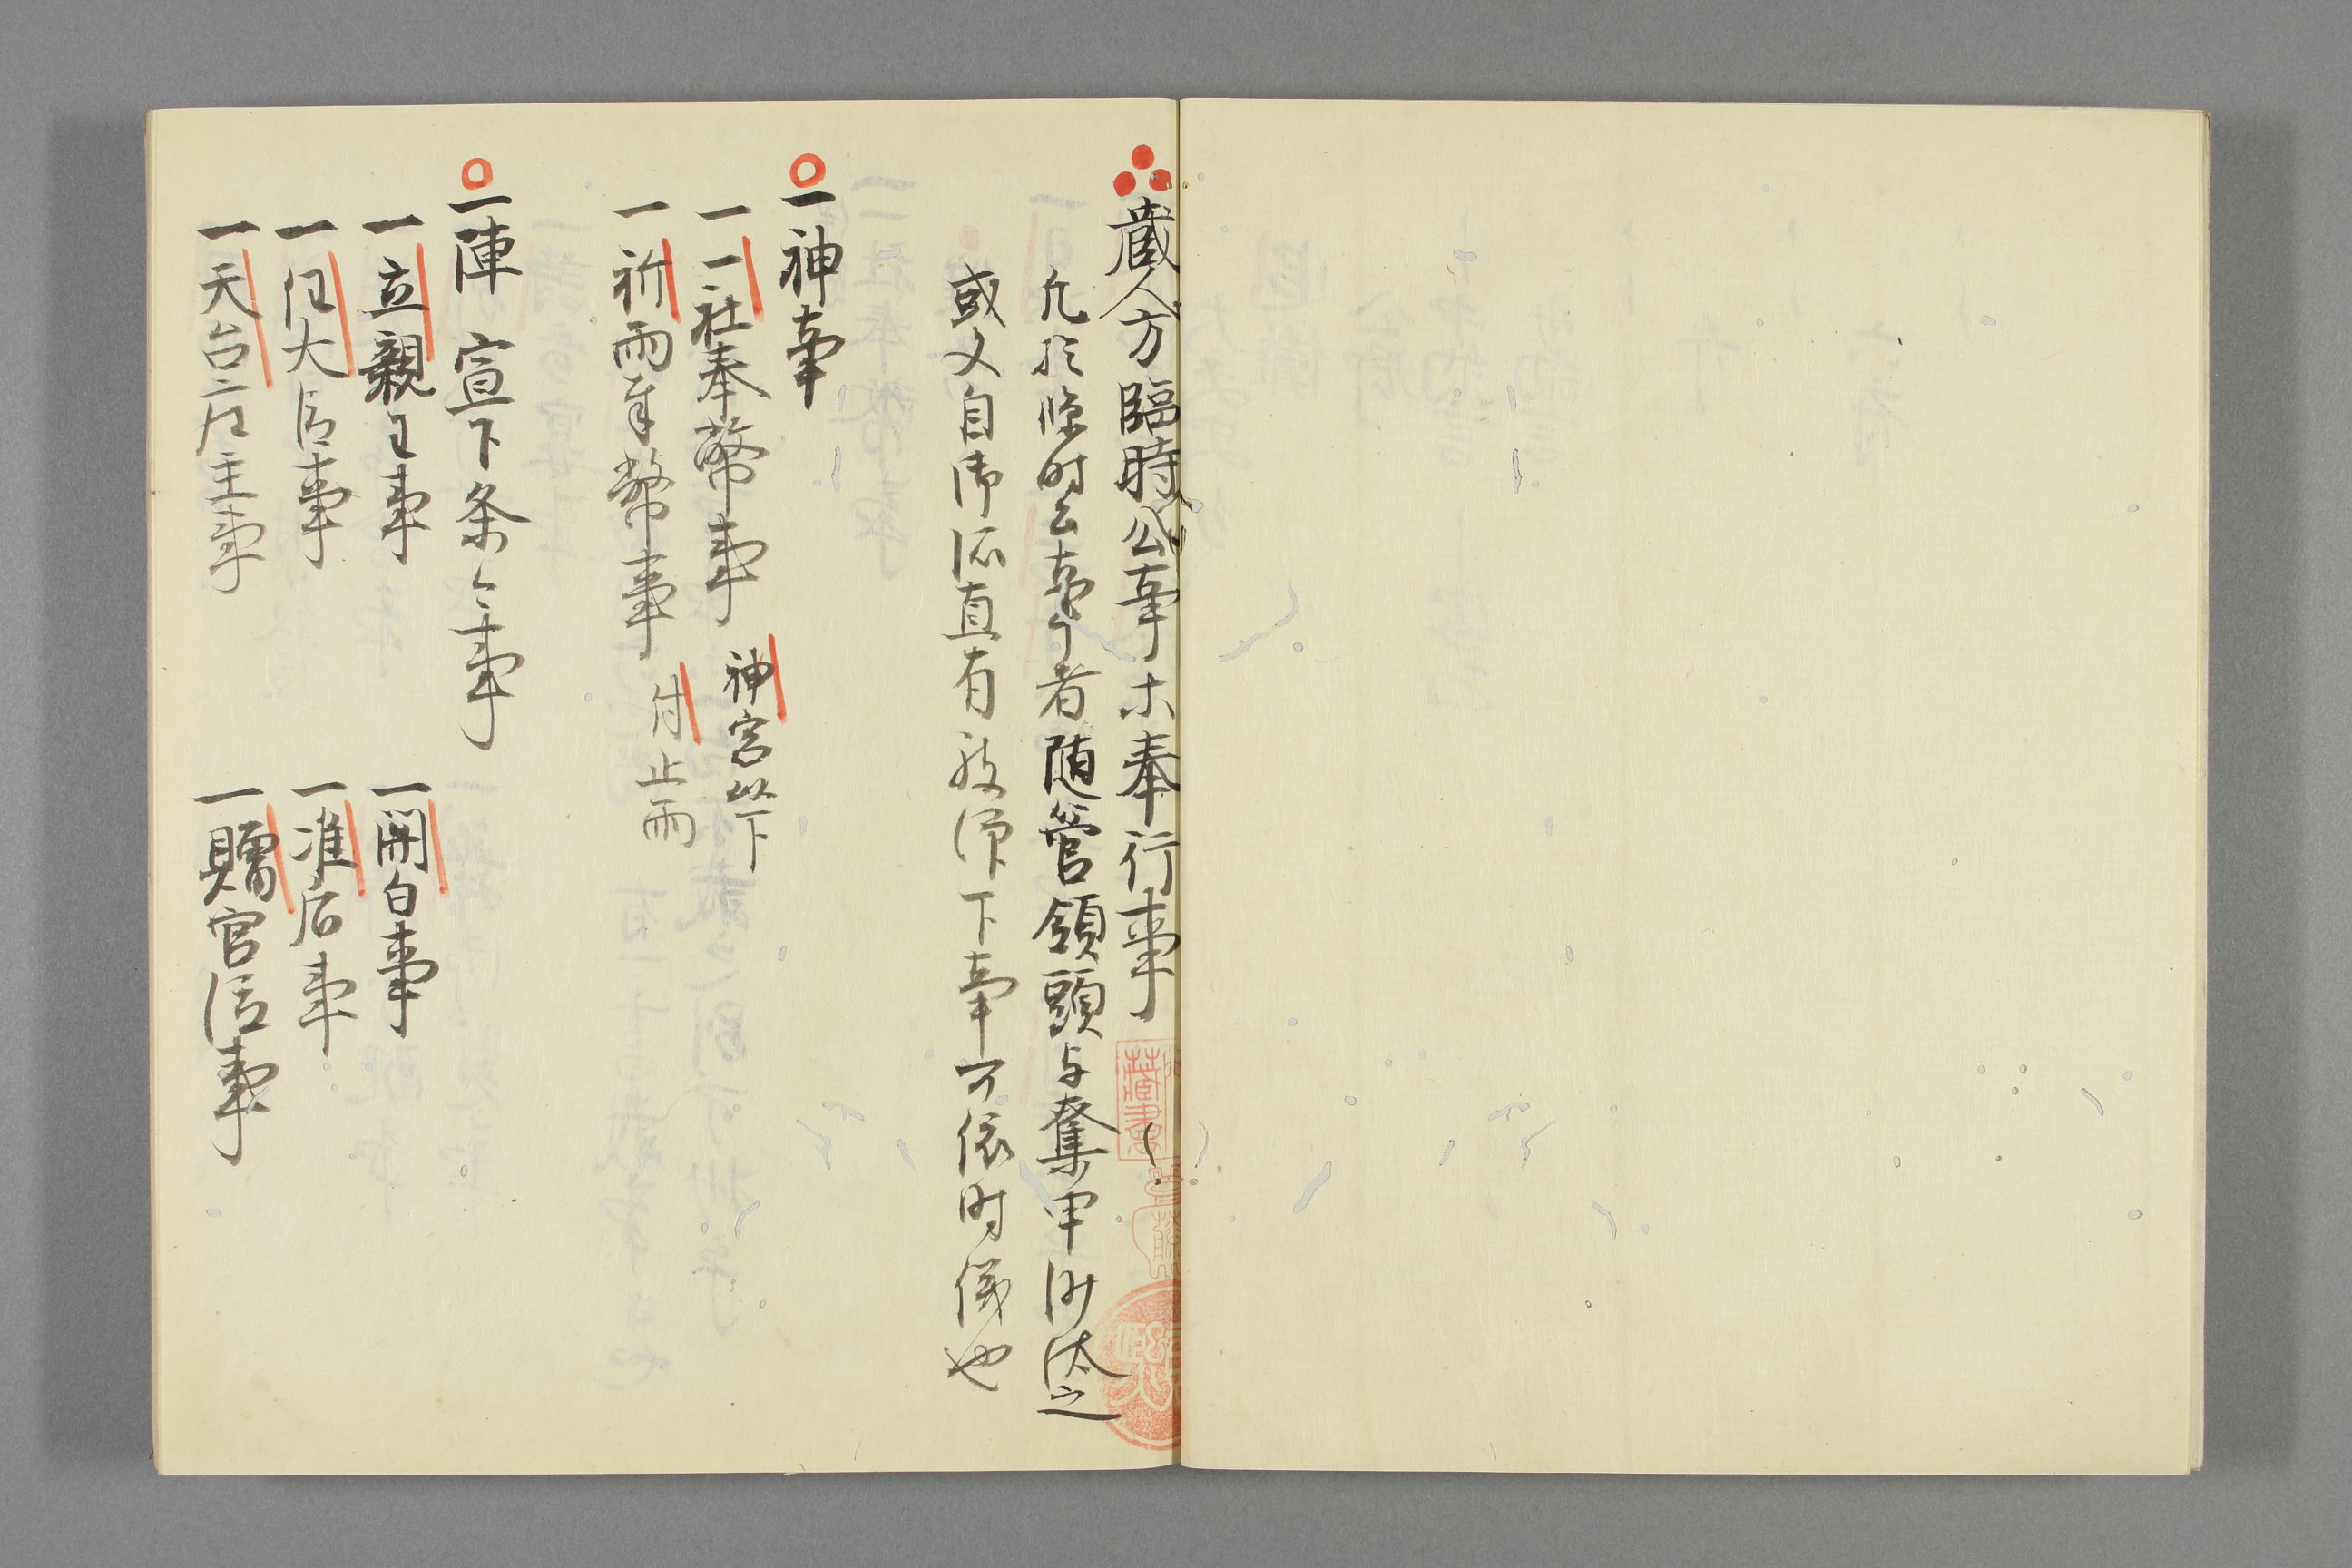 蔵人方臨時公事等奉行事
凡於臨時公事者随管領頭与奪申沙汰之
或又自御所直有被仰下事可依時儀也
一神事
一一社奉幣事 神宮以下
一祈雨奉幣事 付止雨
一陣 宣下条々事
一立親王事 一関白事
一任大臣事 一准后事
一天台座主事 一贈官位事
蔵書